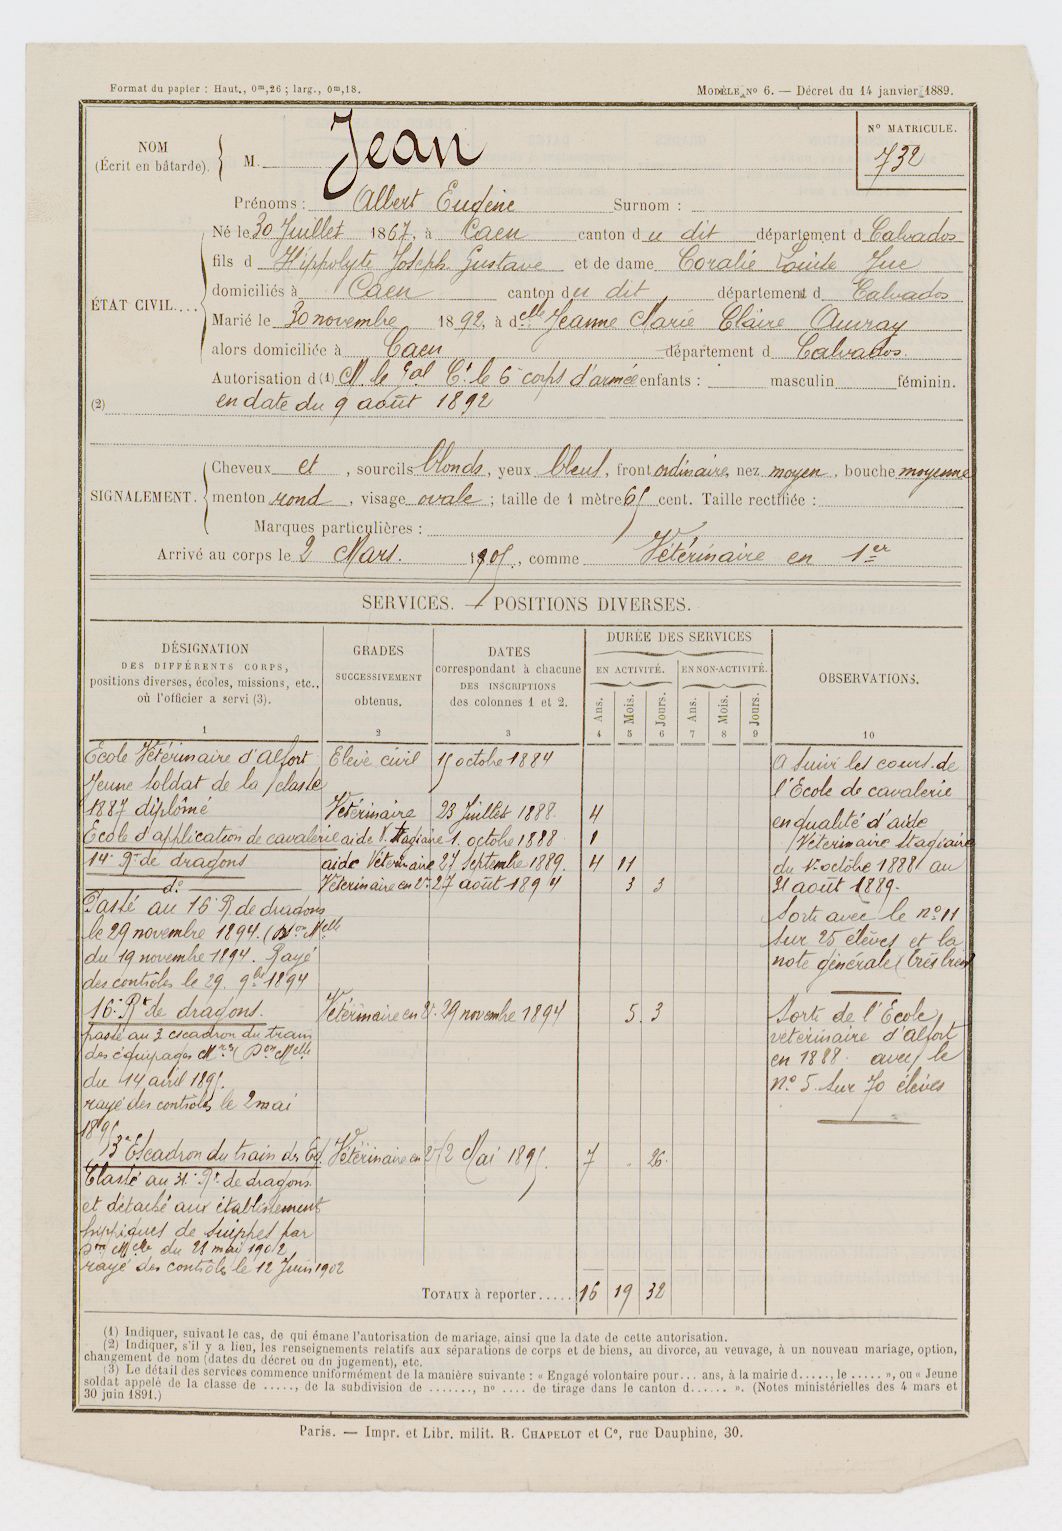 Format du papier : Haut., 0m,26 ; larg., 0m,18.
MODÈLE No 6. — Décret du 14 janvier 1889.
NOM
(Écrit en bâtarde).
M. Jean
No MATRICULE.
732
Prénoms : Albert Eugène Surnom :
Né le 30 Juillet 1867, à Caen canton du dit département d Calvados
fils d Hippolyte Joseph Gustave et de dame Coralie Louise Jue
domiciliés à Caen canton du dit département d Calvados
ÉTAT CIVIL....
Marié le 30 novembre 1892, à delle Jeanne Marie Claire Auvray
alors domiciliée à Caen département d Calvados.
Autorisation d (1) M. le Gal Ct le 6e corps d'armée enfants : masculin féminin.
(2) en date du 9 août 1892
SIGNALEMENT.
Cheveux et, sourcils blonds, yeux bleus, front ordinaire, nez moyen, bouche moyenne
menton rond, visage ovale ; taille de 1 mètre 65 cent. Taille rectifiée :
Marques particulières :
Arrivé au corps le 2 Mars. 1905, comme Vétérinaire en 1er
SERVICES. — POSITIONS DIVERSES.
DÉSIGNATION
DES DIFFÉRENTS CORPS,
positions diverses, écoles, missions, etc.,
où l'officier a servi (3).
GRADES
SUCCESSIVEMENT
obtenus.
DATES
correspondant à chacune
DES INSCRIPTIONS
des colonnes 1 et 2.
DURÉE DES SERVICES
EN ACTIVITÉ. EN NON-ACTIVITÉ.
Ans. Mois. Jours. Ans. Mois. Jours.
OBSERVATIONS.
1 2 3 4 5 6 7 8 9 10
Ecole Vétérinaire d'Alfort Elève civil 15 octobre 1884
Jeune soldat de la classe
1887 diplômé Vétérinaire 23 Juillet 1888 4
Ecole d'application de cavalerie aide V. stagiaire 1. octobre 1888 1
14e Rt de dragons aide Vétérinaire 27 septembre 1889. 4 11
do Vétérinaire en 2e 27 août 1894 3 3
Passé au 16e R. de dragons
le 29 novembre 1894. (Don Melle
du 19 novembre 1894. Rayé
des contrôles le 29. 9bre 1894
16e Rt de dragons. Vétérinaire en 2e 29 novembre 1894 5 3
passé au 3 escadron du train
des équipages Mres (Don Melle
du 14 avril 1895.
rayé des contrôles le 2 mai
1895
3e Escadron du train des Eq. Vétérinaire en 2e 2 Mai 1895. 7 . 26
Classé au 31e Rt de dragons
et détaché aux établissements
hippiques de Suippes par
Don Melle du 21 mai 1902
rayé des contrôles le 12 Juin 1902
A suivi les cours de
l'Ecole de cavalerie
en qualité d'aide
Vétérinaire Stagiaire
du 1er octobre 1888 au
31 août 1889.
Sorti avec le no 11
sur 25 élèves et la
note générale (très bien)
Sorti de l'Ecole
vétérinaire d'Alfort
en 1888 avec le
no 5 sur 70 élèves
TOTAUX à reporter..... 16 19 32
(1) Indiquer, suivant le cas, de qui émane l'autorisation de mariage, ainsi que la date de cette autorisation.
(2) Indiquer, s'il y a lieu, les renseignements relatifs aux séparations de corps et de biens, au divorce, au veuvage, à un nouveau mariage, option,
changement de nom (dates du décret ou du jugement), etc.
(3) Le détail des services commence uniformément de la manière suivante : « Engagé volontaire pour... ans, à la mairie d....., le ..... », ou « Jeune
soldat appelé de la classe de ....., de la subdivision de ......., no .... de tirage dans le canton d...... ». (Notes ministérielles des 4 mars et
30 juin 1891.)
Paris. — Impr. et Libr. milit. R. CHAPELOT et Co, rue Dauphine, 30.